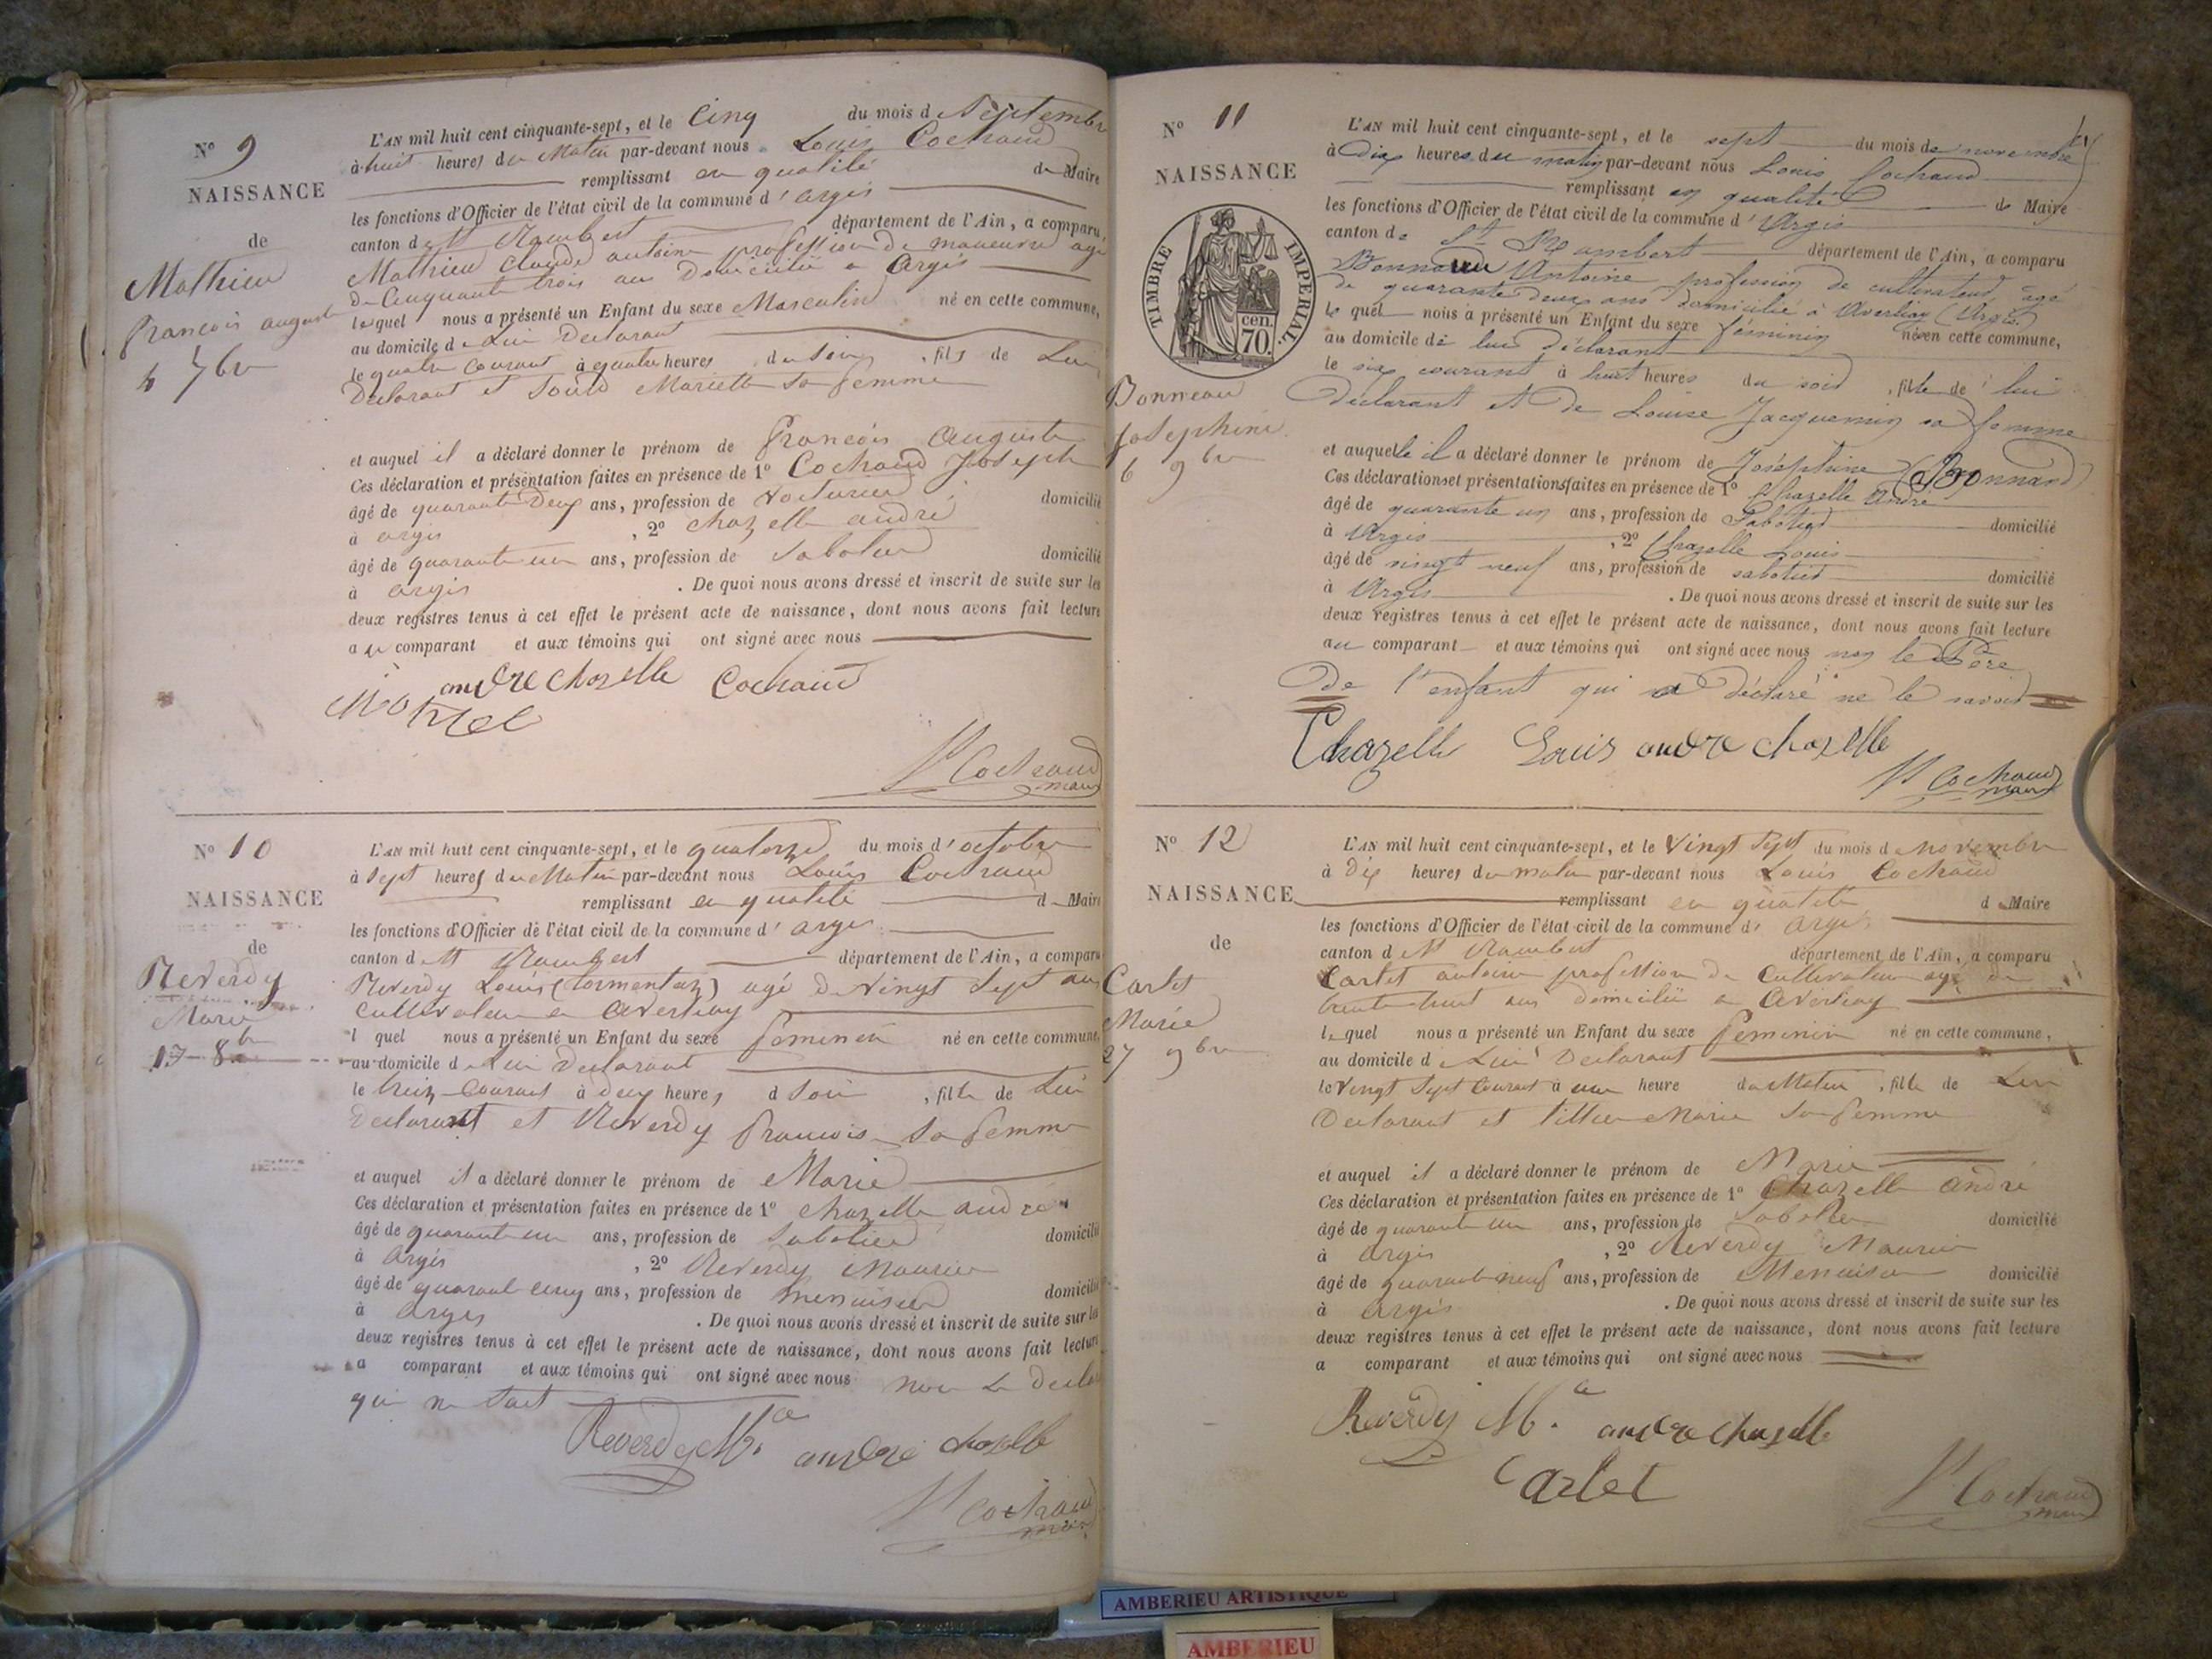 N° 9
NAISSANCE
de
Mathieu
François auguste
4 7bre
L'AN mil huit cent cinquante-sept, et le Cinq du mois d Septembre
à huit heures du Matin par-devant nous Louis Cochaud
remplissant en qualité de Maire
les fonctions d'Officier de l'état civil de la commune d'argis
canton de St Rambert département de l'Ain, a comparu
Mathieu Claude antoine profession de manœuvre agé
de Cinquante trois ans Domicilié a Argis
lequel nous a présenté un Enfant du sexe Masculin né en cette commune,
au domicile de Lui Declarant
le quatre Courant à quatre heures du Soir, fils de Lui
Declarant et Mariette Sa femme
et auquel il a déclaré donner le prénom de François Auguste
Ces déclaration et présentation faites en présence de 1° Cochaud Joseph
âgé de quarante Deux ans, profession de Voiturier domicilié
à argis, 2° Chazelle andré
âgé de quarante un ans, profession de Sabotier domicilié
à argis. De quoi nous avons dressé et inscrit de suite sur les
deux registres tenus à cet effet le présent acte de naissance, dont nous avons fait lecture
au comparant et aux témoins qui ont signé avec nous
andre chazelle Cochaud
Ls Cochaud
maire
N° 10
NAISSANCE
de
Reverdy
Marie
13 8bre
L'AN mil huit cent cinquante-sept, et le quatorze du mois d'octobre
à Sept heures du Matin par-devant nous Louis Cochaud
remplissant en qualité d Maire
les fonctions d'Officier de l'état civil de la commune d'argis
canton d St Rambert département de l'Ain, a comparu
Reverdy Louis (Tormentaz) agé de Vingt Sept ans
Cultivateur a Averliay
l quel nous a présenté un Enfant du sexe feminin né en cette commune,
au domicile de Lui Declarant
le treize Courant à deux heures d Soir, fille de Lui
Declarant et Reverdy françoise Sa femme
et auquel il a déclaré donner le prénom de Marie
Ces déclaration et présentation faites en présence de 1° Chazelle andré
âgé de quarante un ans, profession de Sabotier domicilié
à Argis, 2° Reverdy Maurice
âgé de quarante cinq ans, profession de Menuisier domicilié
à Argis. De quoi nous avons dressé et inscrit de suite sur les
deux registres tenus à cet effet le présent acte de naissance, dont nous avons fait lecture
a comparant et aux témoins qui ont signé avec nous non Le
qui ne Sait
Reverdy Mce andré chazelle
Ls Cochaud
maire
N° 11
NAISSANCE
TIMBRE IMPERIAL
cen. 70.
Bonneau
Josephine
6 9bre
L'AN mil huit cent cinquante-sept, et le sept du mois de novembre
à Dix heures du matin par-devant nous Louis Cochaud
remplissant en qualité de Maire
les fonctions d'Officier de l'état civil de la commune d'Argis
canton de St Rambert département de l'Ain, a comparu
Antoine profession de cultivateur âgé
de quarante deux ans domicilié à Averliay (Argis)
le quel nous a présenté un Enfant du sexe féminin née en cette commune,
au domicile de lui déclarant
le six courant à huit heures du soir, fille de lui
déclarant et de Louise Jacquemin sa femme
et auquelle il a déclaré donner le prénom de Joséphine (Bonnard)
Ces déclarations et présentations faites en présence de 1° Chazelle André
âgé de quarante un ans, profession de Sabotier domicilié
à Argis, 2° Chazelle Louis
âgé de vingt neuf ans, profession de sabotier domicilié
à Argis. De quoi nous avons dressé et inscrit de suite sur les
deux registres tenus à cet effet le présent acte de naissance, dont nous avons fait lecture
au comparant et aux témoins qui ont signé avec nous non le Père
De l'enfant qui a déclaré ne le savoir
Chazelle Louis andre chazelle
Ls Cochaud
maire
N° 12
NAISSANCE
de
Carlet
Marie
27 9bre
L'AN mil huit cent cinquante-sept, et le Vingt Sept du mois d Novembre
à dix heures du matin par-devant nous Louis Cochaud
remplissant en qualité d Maire
les fonctions d'Officier de l'état civil de la commune d'Argis
canton d St Rambert département de l'Ain, a comparu
Carlet antoine profession de Cultivateur agé de
trente huit ans domicilié a Averliay
lequel nous a présenté un Enfant du sexe feminin né en cette commune,
au domicile de Lui Declarant
le Vingt Sept Courant à une heure du Matin, fille de Lui
Declarant et Marie Sa femme
et auquel il a déclaré donner le prénom de Marie
Ces déclaration et présentation faites en présence de 1° Chazelle André
âgé de quarante un ans, profession de Sabotier domicilié
à Argis, 2° Reverdy Maurice
âgé de quarante neuf ans, profession de Menuisier domicilié
à Argis. De quoi nous avons dressé et inscrit de suite sur les
deux registres tenus à cet effet le présent acte de naissance, dont nous avons fait lecture
a comparant et aux témoins qui ont signé avec nous
Reverdy Mce andre chazelle
Carlet
Ls Cochaud
maire
AMBERIEU ARTISTIQUE
AMBERIEU